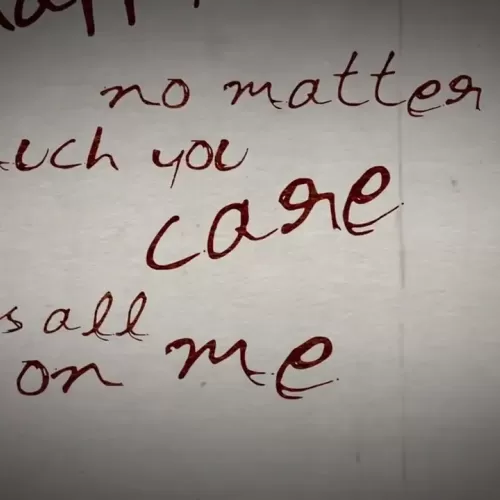 no matter
uch you
care
s all
on me